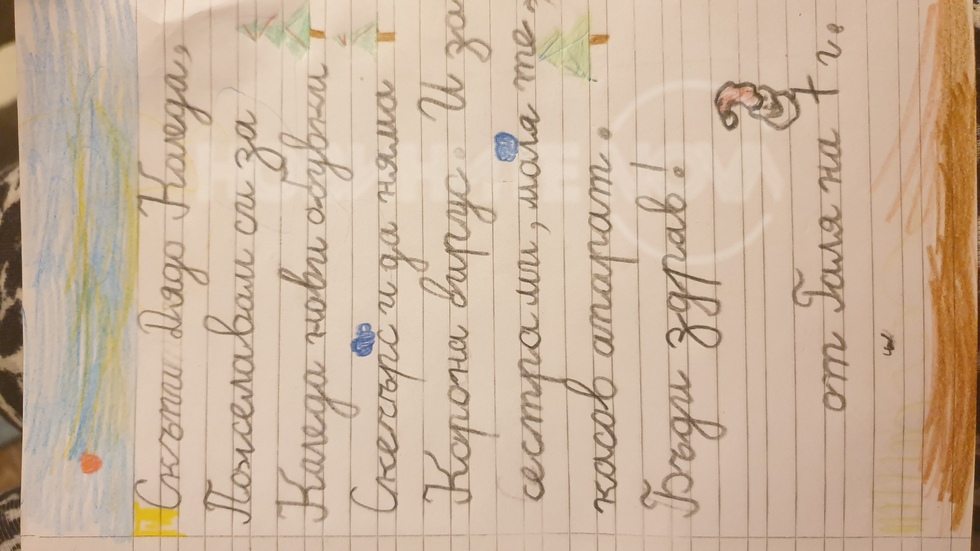 Скъпи Дядо Коледа,
Пожелавам си за
Коледа нови обувки
Скечърс и да няма
Корона вирус. И за
сестра ми, моля те,
касов апарат.
Бъди здрав!
от Галя на 7 г.